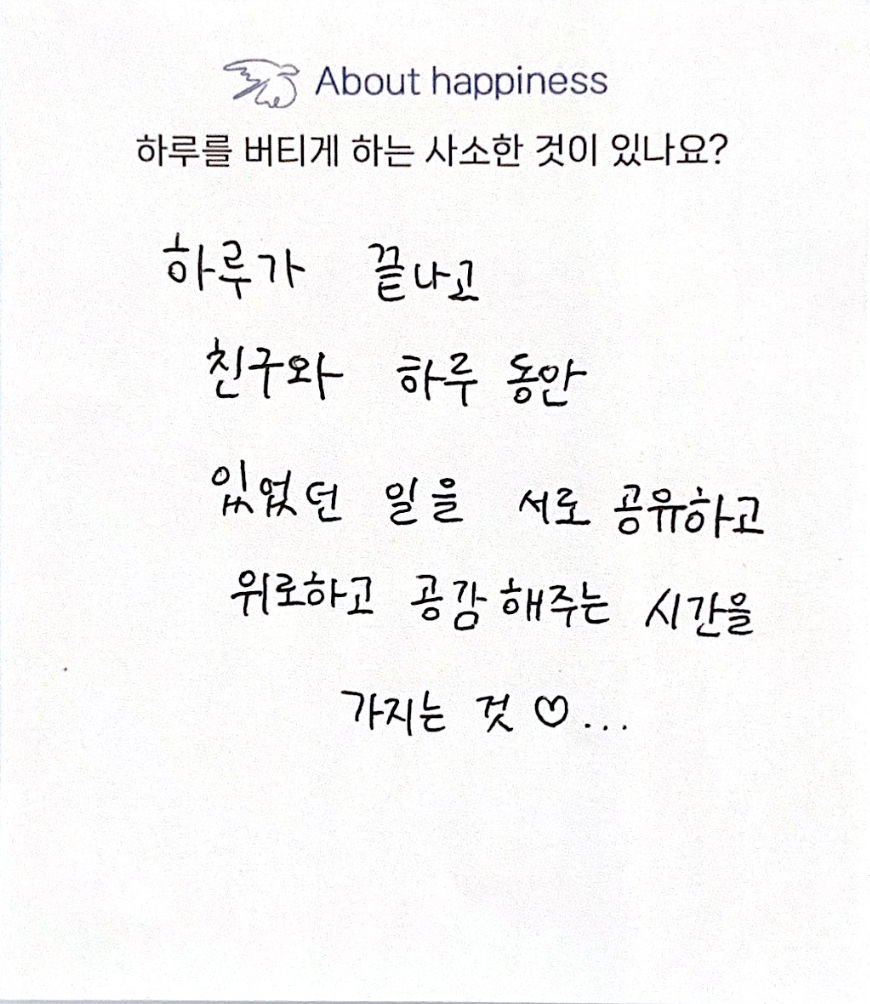 About happiness
하루를 버티게 하는 사소한 것이 있나요?
하루가 끝나고
친구와 하루 동안
있었던 일을 서로 공유하고
위로하고 공감해주는 시간을
가지는 것 ♡...